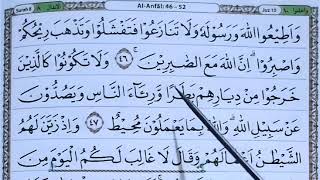 Surah 8 الأنفال ٨ Al-Anfâl: 46 - 52 Juz 10 واعلموا ١٠
وَاَطِيْعُوا اللّٰهَ وَرَسُوْلَهٗ وَلَا تَنَازَعُوْا فَتَفْشَلُوْا وَتَذْهَبَ رِيْحُكُمْ
وَاصْبِرُوْا ۗ اِنَّ اللّٰهَ مَعَ الصّٰبِرِيْنَ ۝٤٦ وَلَا تَكُوْنُوْا كَالَّذِيْنَ
خَرَجُوْا مِنْ دِيَارِهِمْ بَطَرًا وَّرِئَاۤءَ النَّاسِ وَيَصُدُّوْنَ
عَنْ سَبِيْلِ اللّٰهِ ۗ وَاللّٰهُ بِمَا يَعْمَلُوْنَ مُحِيْطٌ ۝٤٧ وَاِذْ زَيَّنَ لَهُمُ
الشَّيْطٰنُ اَعْمَالَهُمْ وَقَالَ لَا غَالِبَ لَكُمُ الْيَوْمَ مِنَ